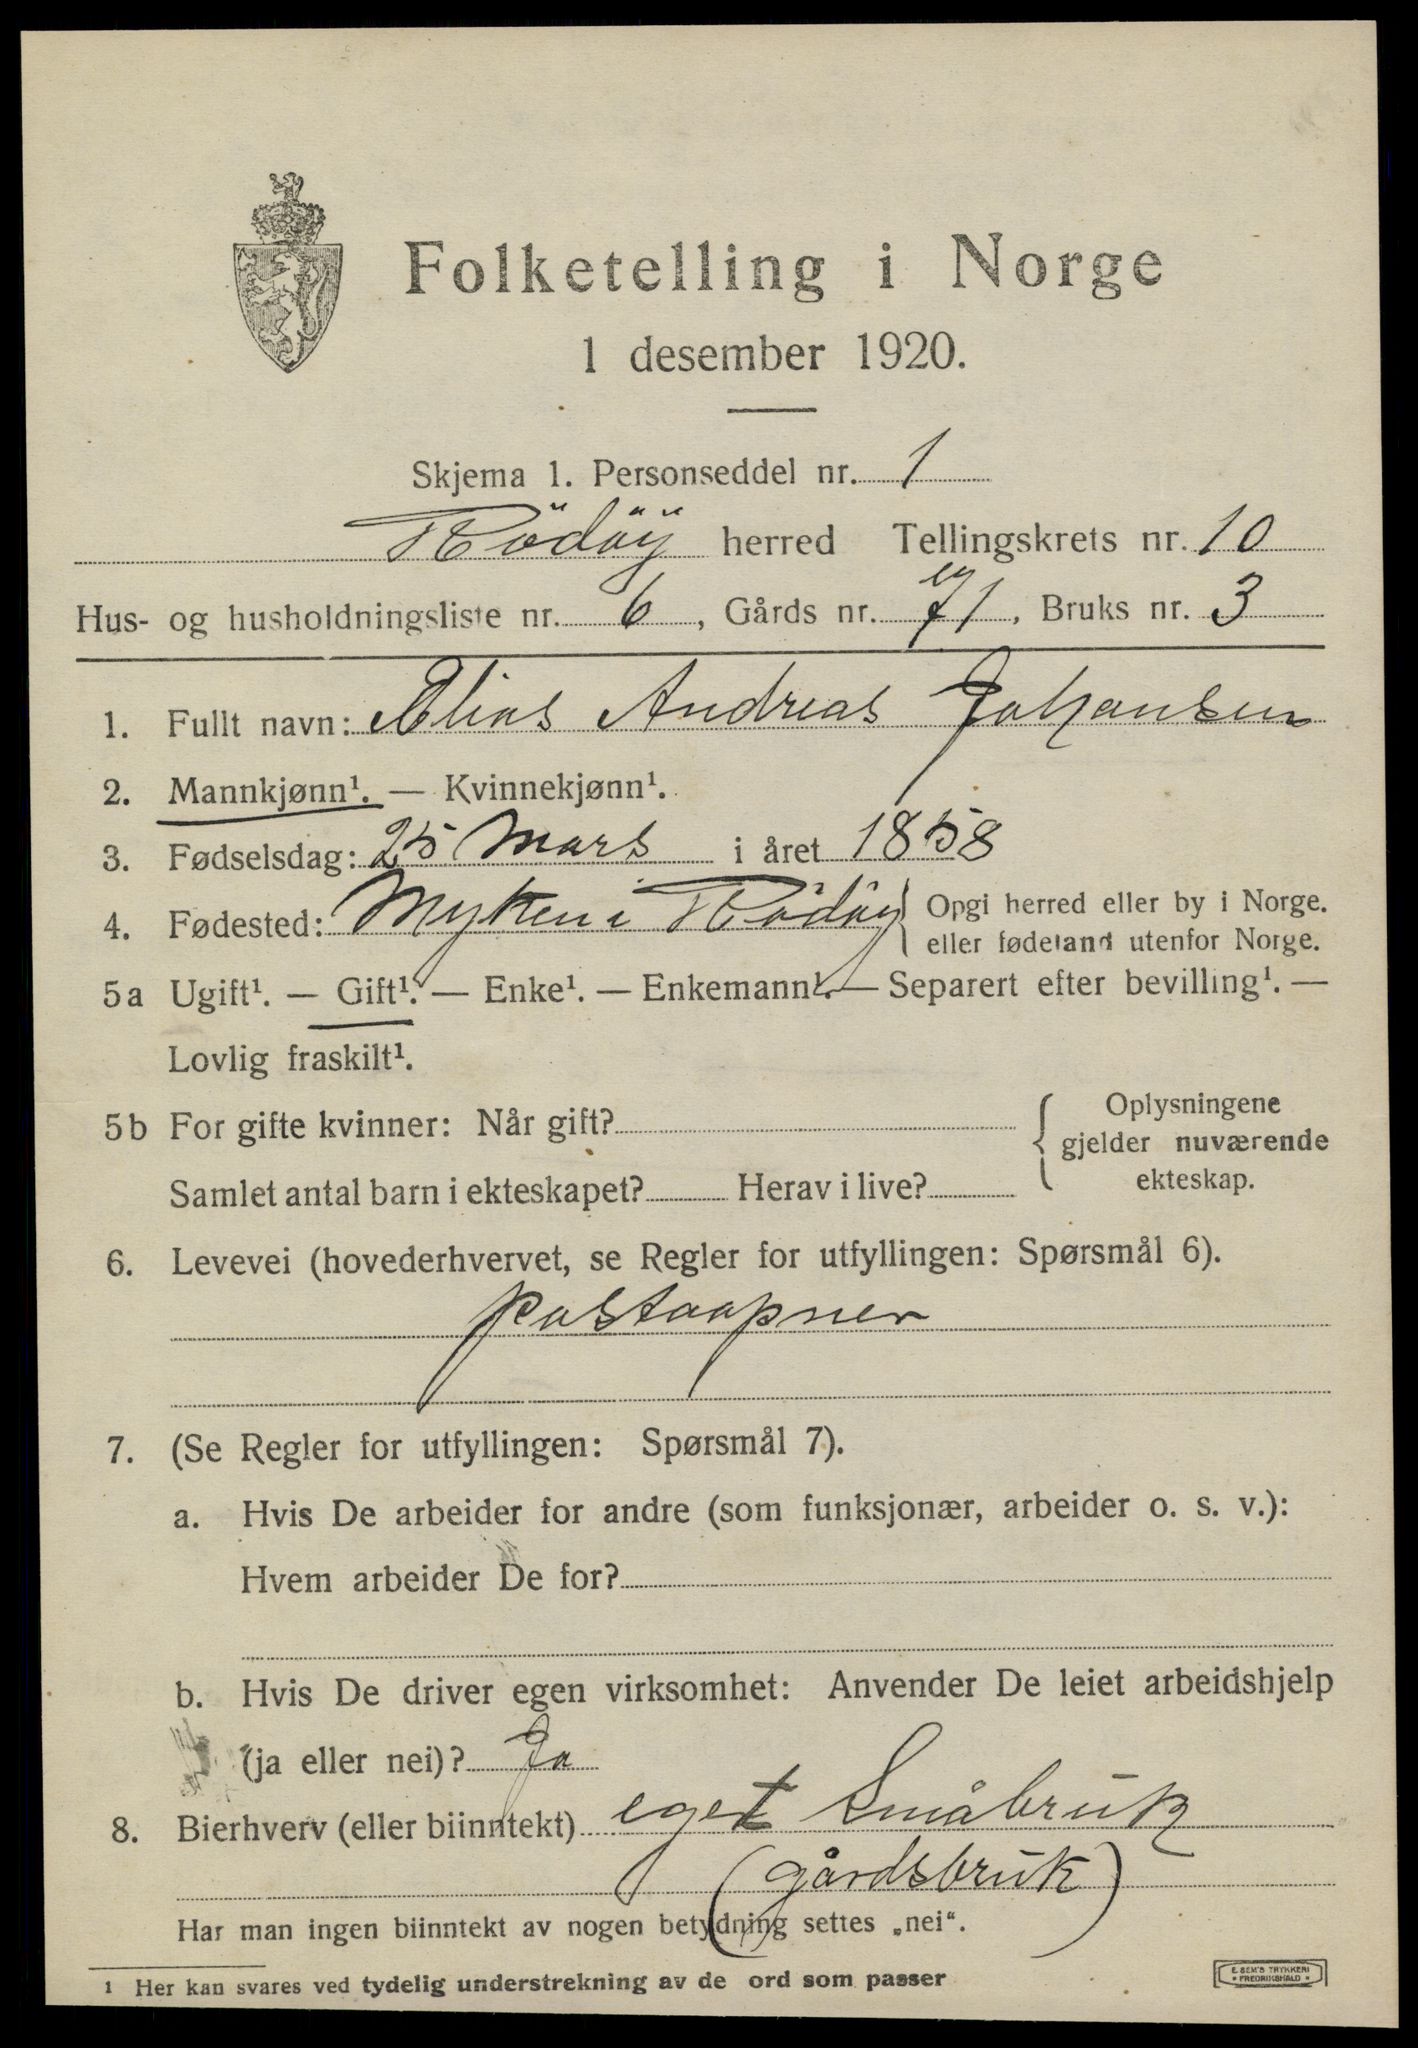 Folketelling i Norge
1 desember 1920.
Skjema 1. Personseddel nr. 1
Rödöy herred Tellingskrets nr. 10
Hus- og husholdningsliste nr. 6, Gårds nr. 71, Bruks nr. 3
1. Fullt navn: Elias Andreas Johansen
2. Mannkjønn¹. — Kvinnekjønn¹.
3. Fødselsdag: 25 Mars i året 1858
4. Fødested: Myken i Rödöy { Opgi herred eller by i Norge.
eller fødeland utenfor Norge.
5a Ugift¹. — Gift¹. — Enke¹. — Enkemann¹. — Separert efter bevilling¹. —
Lovlig fraskilt¹.
5b For gifte kvinner: Når gift?
Samlet antal barn i ekteskapet? Herav i live?
{ Oplysningene
gjelder nuværende
ekteskap.
6. Levevei (hovederhvervet, se Regler for utfyllingen: Spørsmål 6).
postaapner
7. (Se Regler for utfyllingen: Spørsmål 7).
a. Hvis De arbeider for andre (som funksjonær, arbeider o. s. v.):
Hvem arbeider De for?
b. Hvis De driver egen virksomhet: Anvender De leiet arbeidshjelp
(ja eller nei)? Ja
8. Bierhverv (eller biinntekt) eget Småbruk
(gårdsbruk)
Har man ingen biinntekt av nogen betydning settes „nei“.
1 Her kan svares ved tydelig understrekning av de ord som passer
E. SEM'S TRYKKERI
• FREDRIKSHALD •